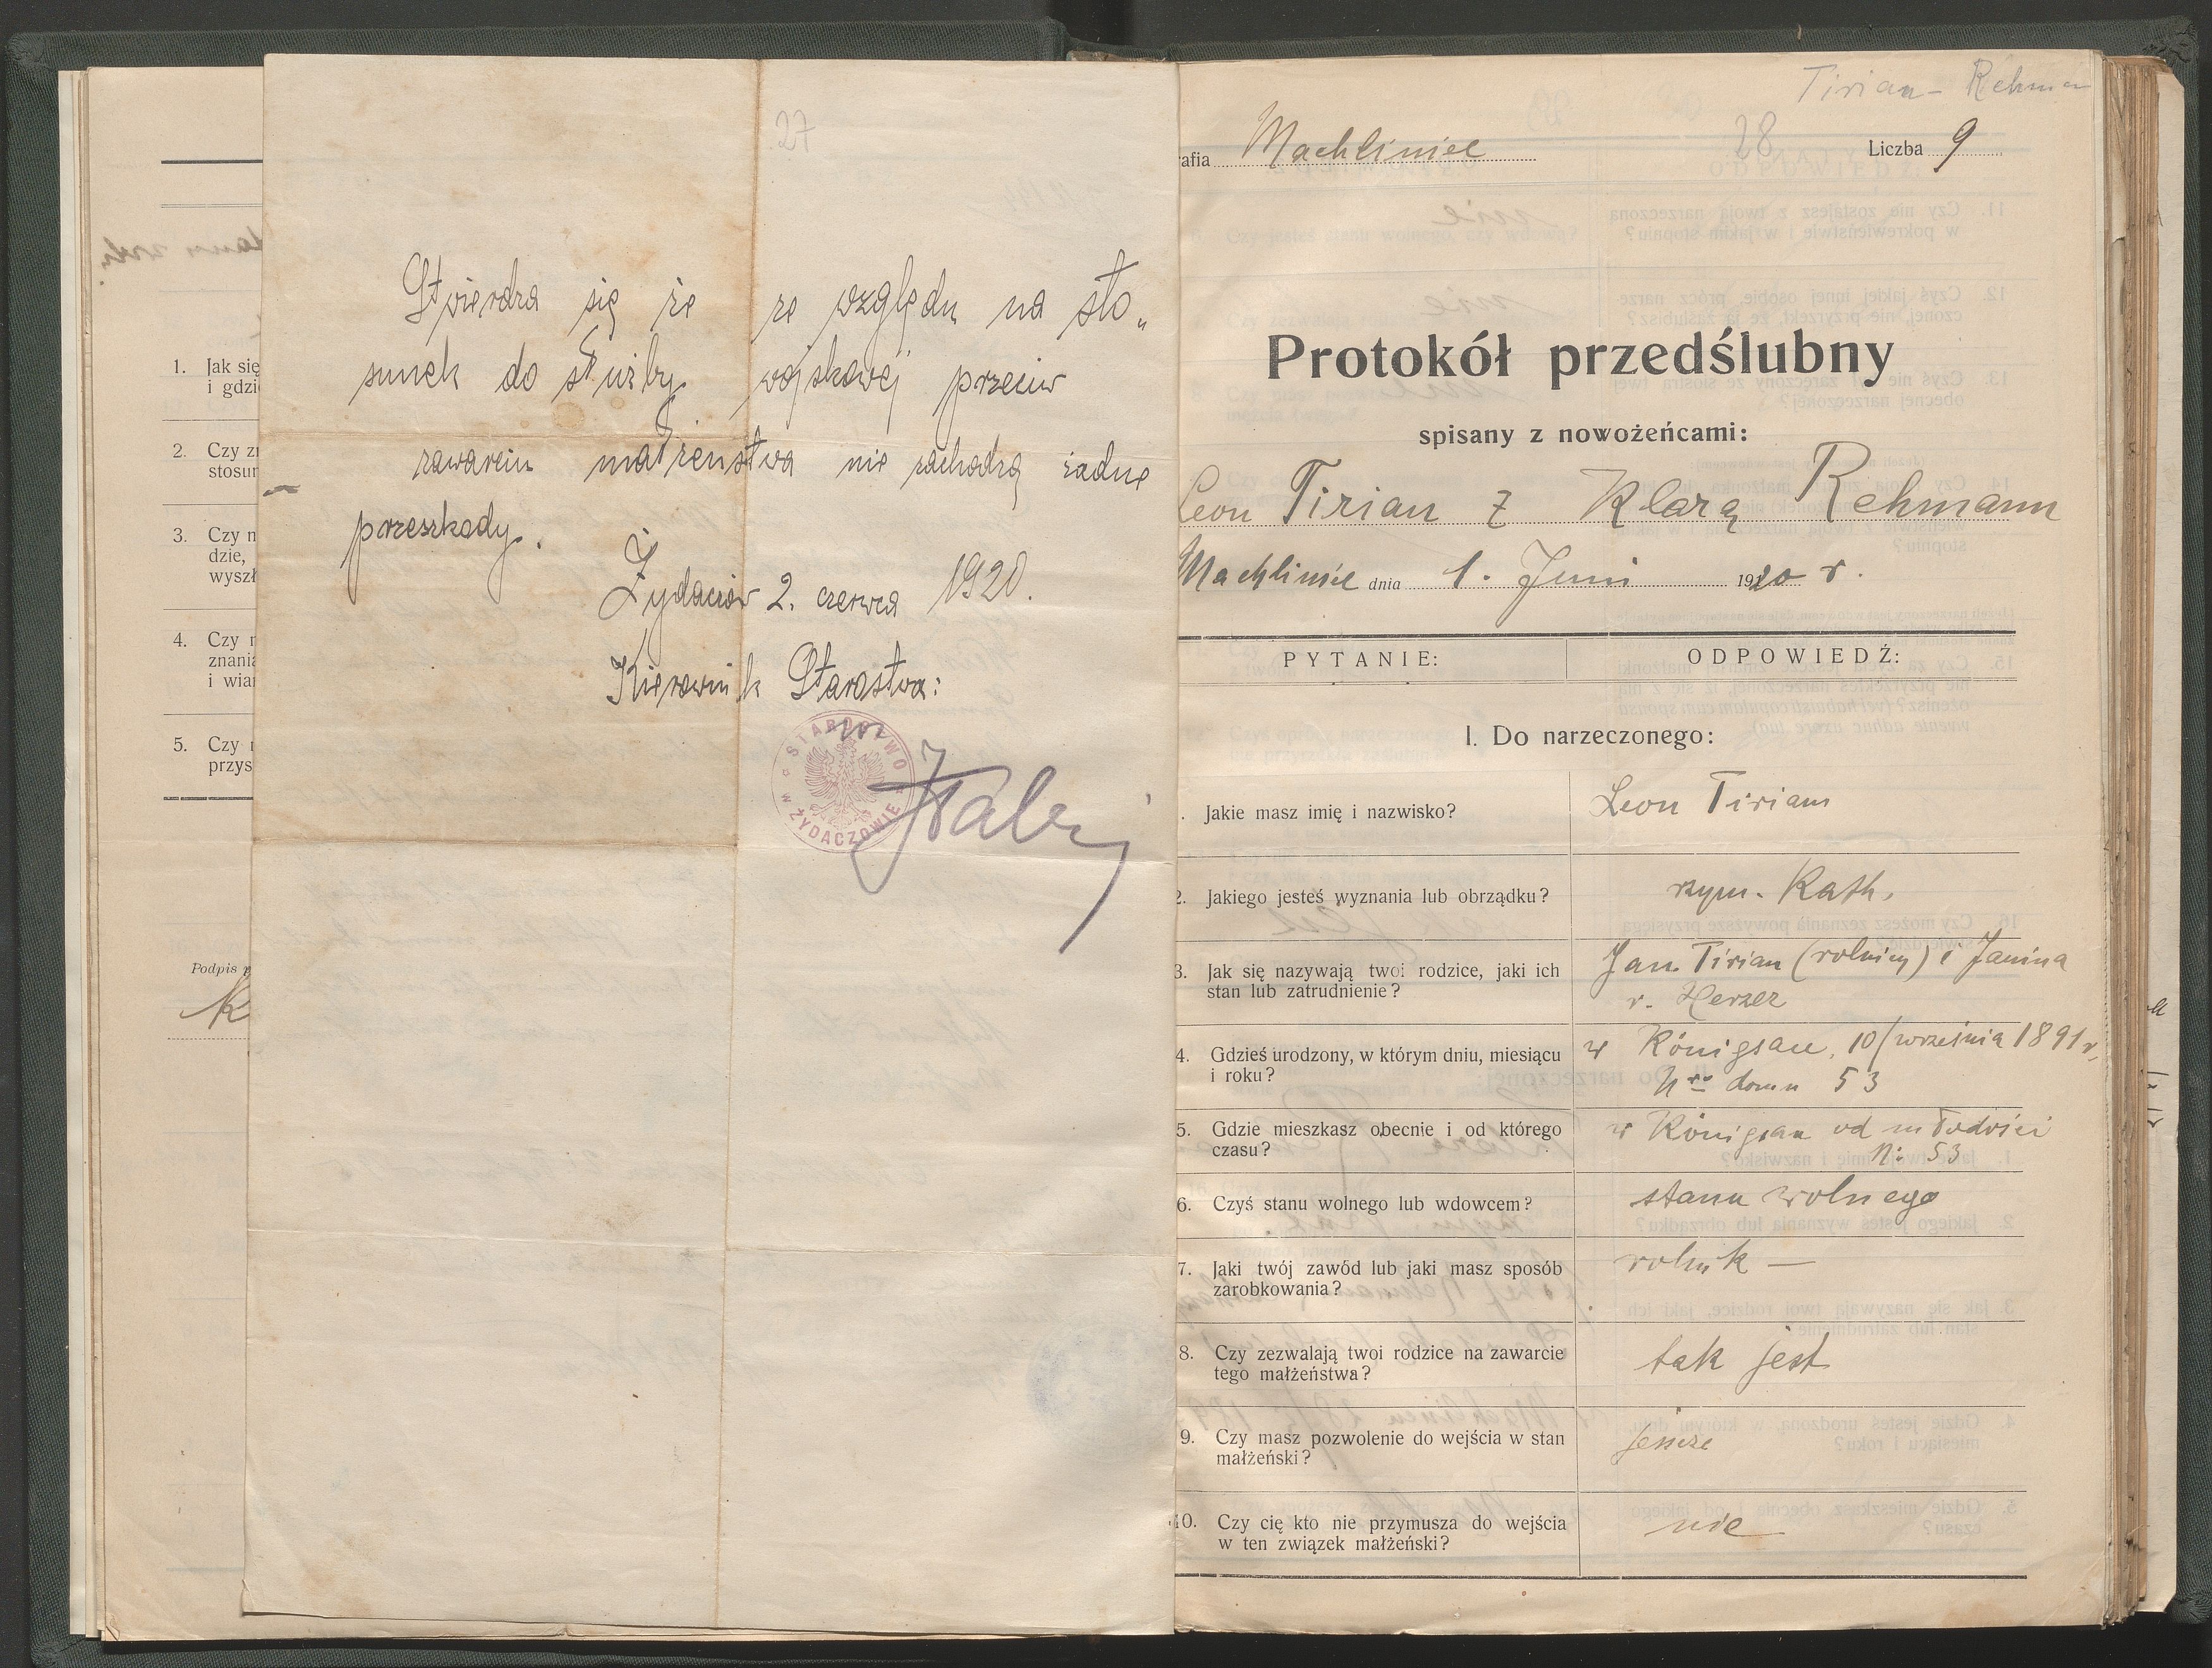 27
Stwierdza się że ze względu na sto„
sunek do służby wojskowej przeciw
zawarciu małżeństwa nie zachodzą żadne
przeszkody.
Żydaczów 2. czerwca 1920.
Kierownik Starostwa:
STAROSTWO
w ŻYDACZOWIE
1. Jak się
i gdzi
2. Czy z
stosu
3. Czy n
dzie,
wyszł
4. Czy
znania
i wia
5. Czy
przys
Podpis
K
Tirian - Rehman
rafia Machliniec 28 Liczba 9
Protokół przedślubny
spisany z nowożeńcami:
Leon Tirian z Klarą Rehmann
Machliniec dnia 1. Juni 1920 r.
PYTANIE: ODPOWIEDŹ:
I. Do narzeczonego:
. Jakie masz imię i nazwisko? Leon Tirian
2. Jakiego jesteś wyznania lub obrządku? rzym. Kath.
3. Jak się nazywają twoi rodzice, jaki ich Jan Tirian (rolnicy) i Janina
stan lub zatrudnienie? r. Herzer
4. Gdzieś urodzony, w którym dniu, miesiącu w Königsau, 10/września 1891 r,
i roku? Nro domu 53
5. Gdzie mieszkasz obecnie i od którego w Königsau od młodości
czasu? N: 53
6. Czyś stanu wolnego lub wdowcem? stanu wolnego
7. Jaki twój zawód lub jaki masz sposób rolnik —
zarobkowania?
8. Czy zezwalają twoi rodzice na zawarcie tak jest
tego małżeństwa?
9. Czy masz pozwolenie do wejścia w stan
małżeński?
10. Czy cię kto nie przymusza do wejścia nie
w ten związek małżeński?